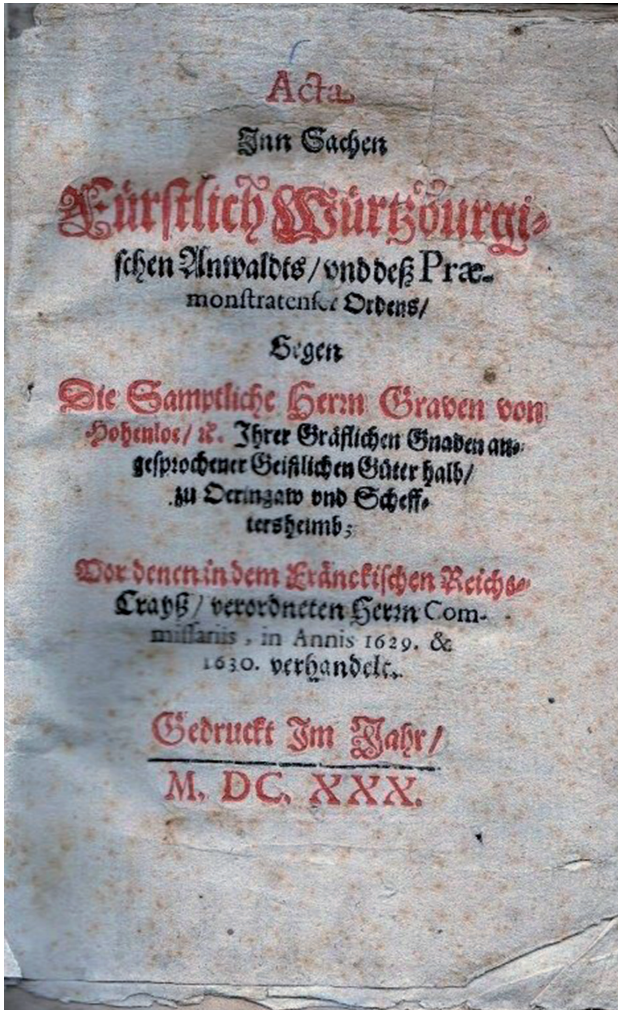 Acta
Inn Sachen
Fürstlich Würtzburgi-
schen Anwaldts / vnd deß Præ-
monstratenser Ordens /
Gegen
Die Samptliche Herrn Graven von
Hohenloe / ꝛc. Ihrer Gräflichen Gnaden an-
gesprochener Geistlichen Güter halb /
zu Oeringaw vnd Scheff-
tersheimb;
Vor denen in dem Fränckischen Reichs-
Crayß / verordneten Herrn Com-
missariis, in Annis 1629. &
1630. verhandelt.
Gedruckt Im Jahr /
M. DC. XXX.